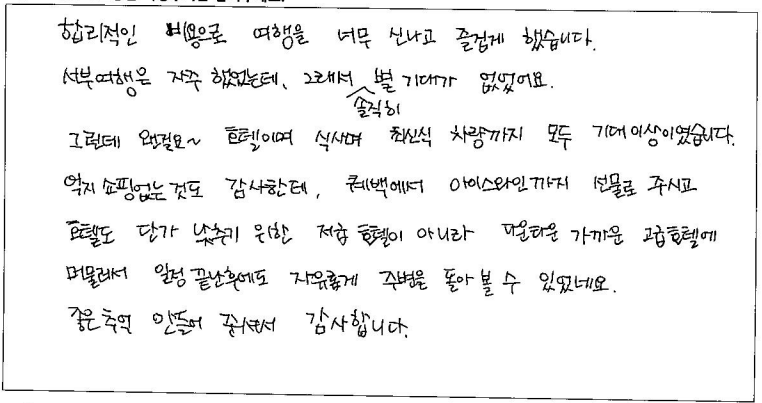 합리적인 비용으로 여행을 너무 신나고 즐겁게 했습니다.
서부여행은 자주 했었는데, 그래서 솔직히 별 기대가 없었어요.
그런데 왠걸요~ 호텔이며 식사며 최신식 차량까지 모두 기대이상이였습니다.
억지 쇼핑없는 것도 감사한데, 퀘백에서 아이스와인까지 선물로 주시고
호텔도 단가 낮추기 위한 저급 호텔이 아니라 다운타운 가까운 고급호텔에
머물러서 일정 끝난후에도 자유롭게 주변을 돌아 볼 수 있었네요.
좋은 추억 만들어 주셔서 감사합니다.